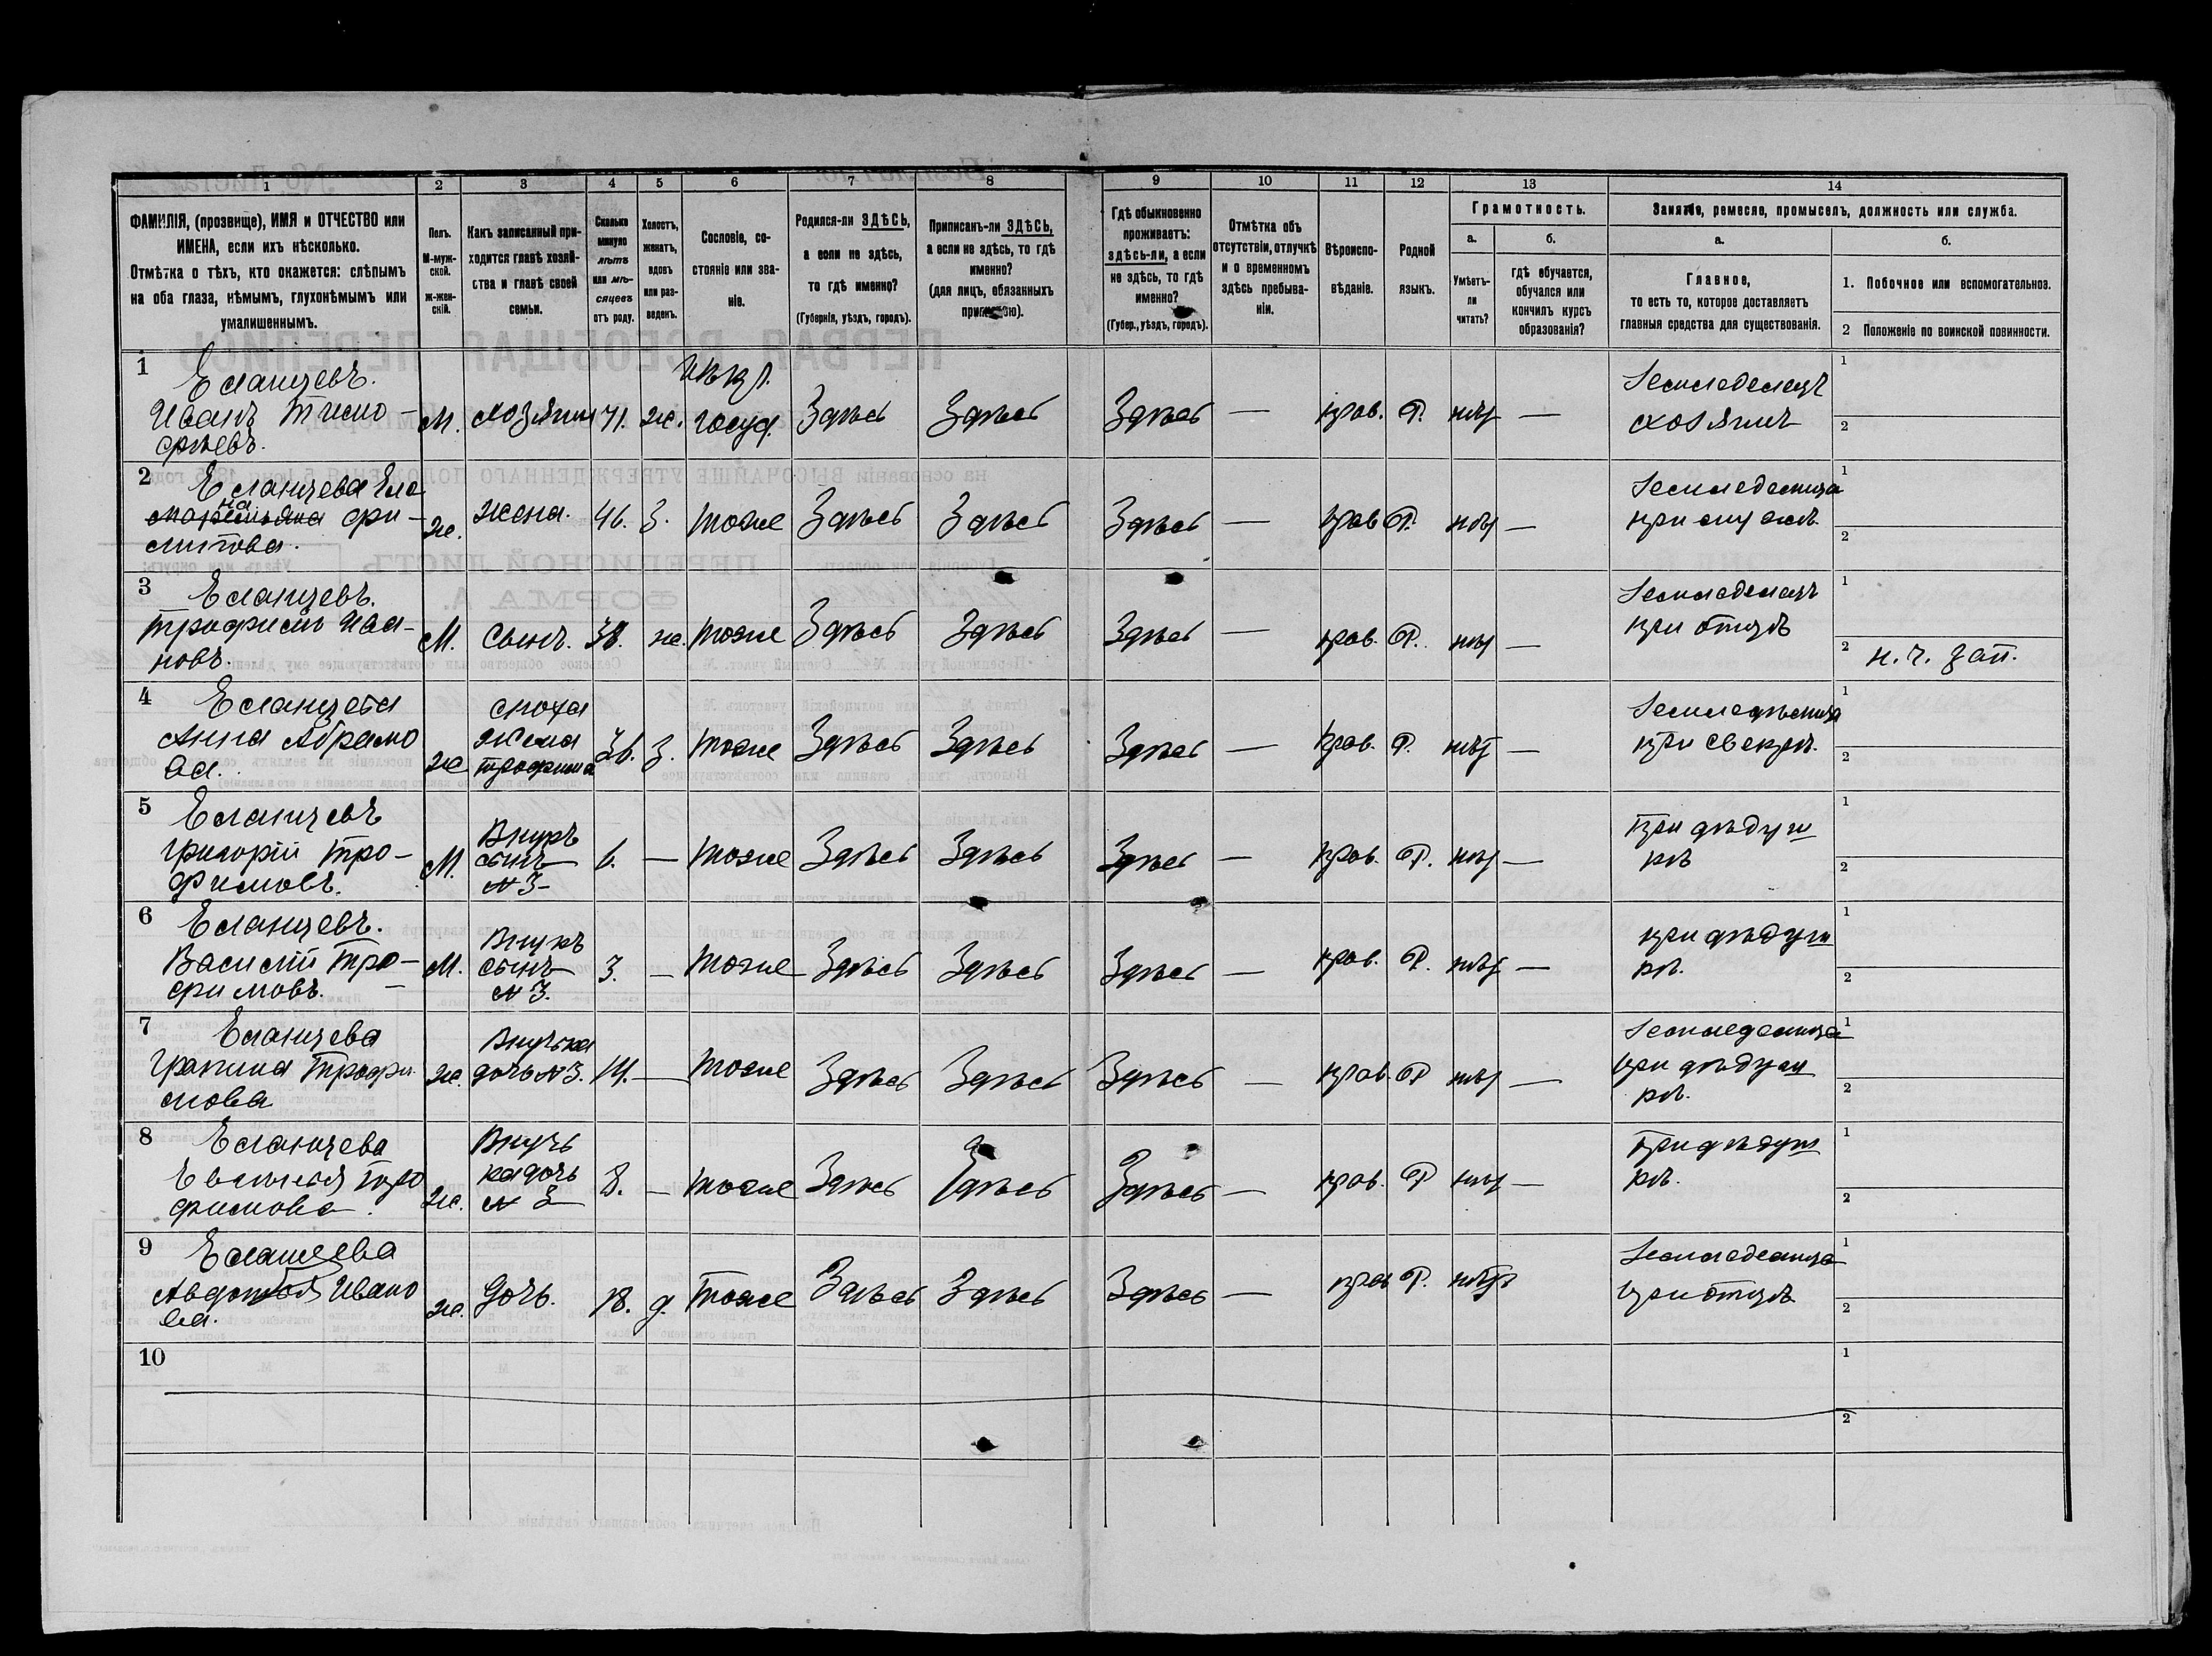 1 2 3 4 5 6 7 8 9 10 11 12 13 14
ФАМИЛІЯ, (прозвище), ИМЯ и ОТЧЕСТВО или
ИМЕНА, если ихъ нѣсколько.
Отмѣтка о тѣхъ, кто окажется: слѣпымъ
на оба глаза, нѣмымъ, глухонѣмымъ или
умалишеннымъ.
Полъ.
М-муж-
ской.
Ж-жен-
скій.
Какъ записанный при-
ходится главѣ хозяй-
ства и главѣ своей
семьи.
Сколько
минуло
лѣтъ
или мѣ-
сяцевъ
отъ роду.
Холостъ,
женатъ,
вдовъ
или раз-
веденъ.
Сословіе, со-
стояніе или зва-
ніе.
Родился-ли ЗДѢСЬ,
а если не здѣсь,
то гдѣ именно?
(Губернія, уѣздъ, городъ).
Приписанъ-ли ЗДѢСЬ,
а если не здѣсь, то гдѣ
именно?
(для лицъ, обязанныхъ
припискою).
Гдѣ обыкновенно
проживаетъ:
здѣсь-ли, а если
не здѣсь, то гдѣ
именно?
(Губер., уѣздъ, городъ).
Отмѣтка объ
отсутствіи, отлучкѣ
и о временномъ
здѣсь пребыва-
ніи.
Вѣроиспо-
вѣданіе.
Родной
языкъ.
Грамотность.
а. б.
Умѣетъ-
ли
читать?
гдѣ обучается,
обучался или
кончилъ курсъ
образованія?
Занятіе, ремесло, промыселъ, должность или служба.
а. б.
Главное,
то есть то, которое доставляетъ
главныя средства для существованія.
1. Побочное или вспомогательное.
2 Положеніе по воинской повинности.
1 Еланцевъ.
Иванъ Тимо-
фѣевъ.
М. хозяинъ 71. ж. госуд. Здѣсь Здѣсь Здѣсь — прав. Р. нѣт —
Земледелецъ
хозяинъ
1
2
2 Еланцева Еле
на Фи-
липова.
ж. жена. 46. З. тоже Здѣсь Здѣсь Здѣсь — прав Р. нѣт —
Земледелица
при мужѣ
1
2
3 Еланцевъ.
Трофимъ Ива-
новъ.
М. Сынъ. 38. ж. тоже Здѣсь Здѣсь Здѣсь — прав. Р. нѣт —
Земледелецъ
при отцѣ
1
2 н. ч. зап.
4 Еланцева
Анна Абрамо
ва.
ж
сноха
жена
Трофима
36. З. тоже Здѣсь Здѣсь Здѣсь — прав. Р. нѣт —
Земледѣлица
при свекрѣ.
1
2
5 Еланцевъ
Григорій Тро-
фимовъ.
М.
Внукъ
сынъ
N 3-
6. — тоже Здѣсь Здѣсь Здѣсь — прав. Р. нѣт —
При дѣдуш
кѣ
1
2
6 Еланцевъ.
Василій Тро-
фимовъ.
М.
Внукъ
сынъ
N 3.
3. — тоже Здѣсь Здѣсь Здѣсь — прав. Р. нѣт —
при дѣдуш
кѣ.
1
2
7 Еланцева
Трофи
мова
ж.
Внучка
дочь N 3.
14. — тоже Здѣсь Здѣсь Здѣсь — прав. Р нѣт —
Земледелица
при дѣдуш
кѣ.
1
2
8 Еланцева
Тро
фимова.
ж.
Внуч
ка дочь
N 3
8. — тоже Здѣсь Здѣсь Здѣсь — прав. Р нѣт —
При дѣдуш
кѣ.
1
2
9 Еланцева
Авдотья Ивано
ва.
ж. дочь. 18. д. тоже Здѣсь Здѣсь Здѣсь — прав Р. нѣт
Земледелица
при отцѣ
1
2
10
1
2